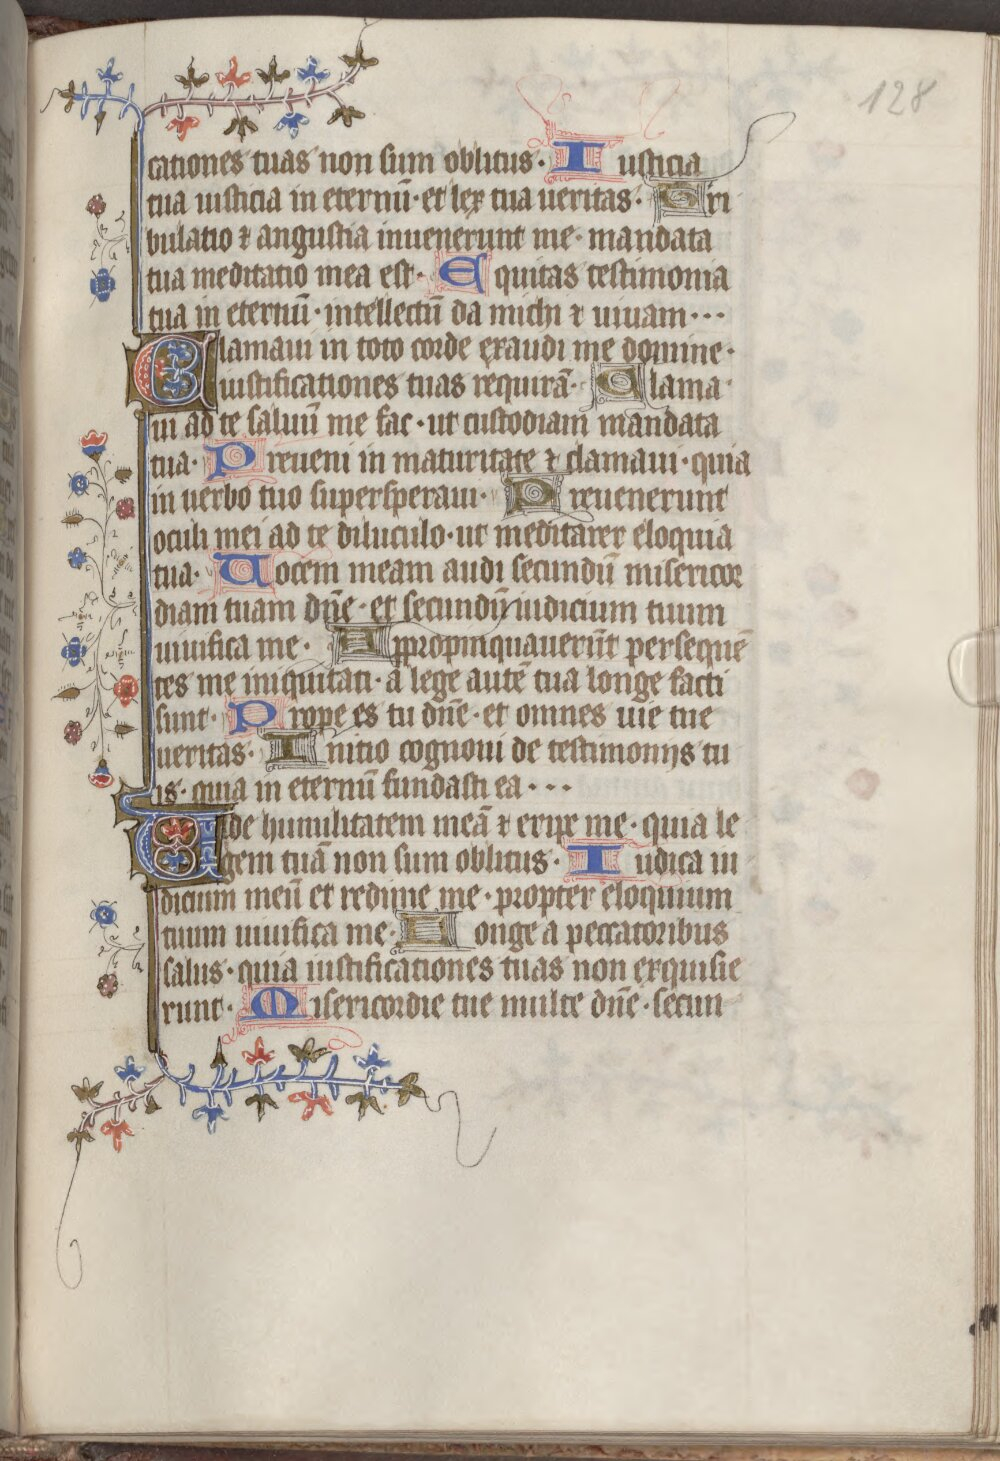 128
cationes tuas non sum oblitus · Iusticia
tua iusticia in eternū · et lex tua ueritas · Tri
bulatio ⁊ angustia inuenerunt me · mandata
tua meditatio mea est · Equitas testimonia
tua in eternū · intellectū da michi ⁊ uiuam · · ·
Clamaui in toto corde exaudi me domine ·
iustificationes tuas requirā · Clama
ui ad te saluū me fac · ut custodiam mandata
tua · Preueni in maturitate ⁊ clamaui · quia
in uerbo tuo supersperaui · Preuenerunt
oculi mei ad te diluculo · ut meditarer eloquia
tua · Uocem meam audi secundū misericor
diam tuam dn̄e · et secundū iudicium tuum
uiuifica me · Appropinquauerūt persequē
tes me iniquitati · a lege autē tua longe facti
sunt · Prope es tu dn̄e · et omnes uie tue
ueritas · Initio cognoui de testimonijs tu
is · quia in eternū fundasti ea · · ·
Uide humilitatem meā ⁊ eripe me · quia le
gem tuā non sum oblitus · Iudica iu
dicium meū et redime me · propter eloquium
tuum uiuifica me · Longe a peccatoribus
salus · quia iustificationes tuas non exquisie
runt · Misericordie tue multe dn̄e · secun